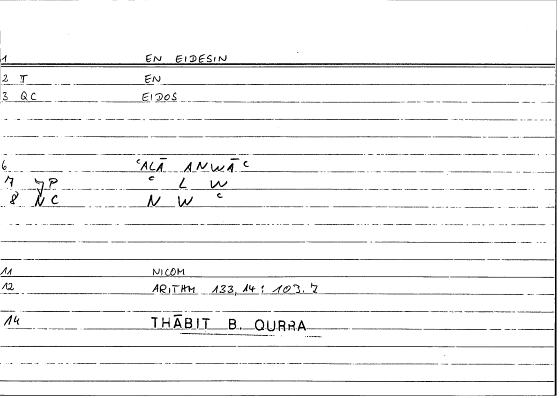 1 EN EIDESIN
2 T EN
3 QC EIDOS
6 ʿALĀ ANWĀʿ
7 JP ʿ L W
8 NC N W ʿ
11 NICOM
12 ARITHM 133,14 : 103.7
14 THĀBIT B. QURRA